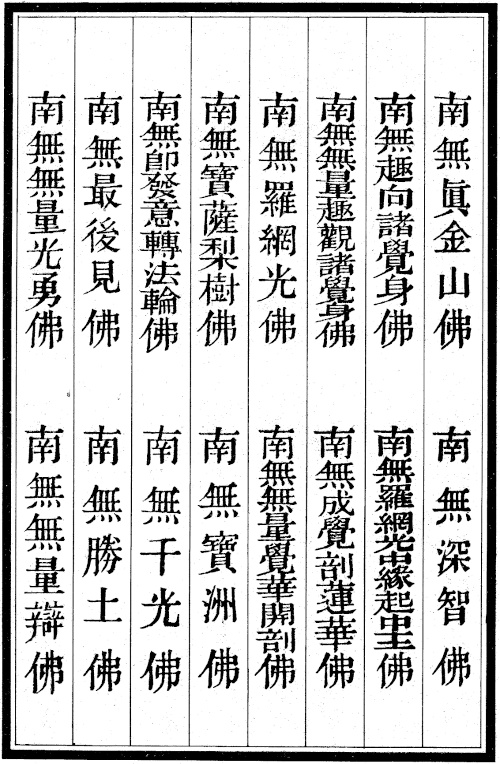 南無眞金山佛　南無深智佛
南無趣向諸覺身佛　南無羅網光中緣起中王佛
南無無量趣觀諸覺身佛　南無成覺剖蓮華佛
南無羅網光佛　南無無量覺華開剖佛
南無寶薩梨樹佛　南無寶洲佛
南無卽發意轉法輪佛　南無千光佛
南無最後見佛　南無勝土佛
南無無量光勇佛　南無無量辯佛